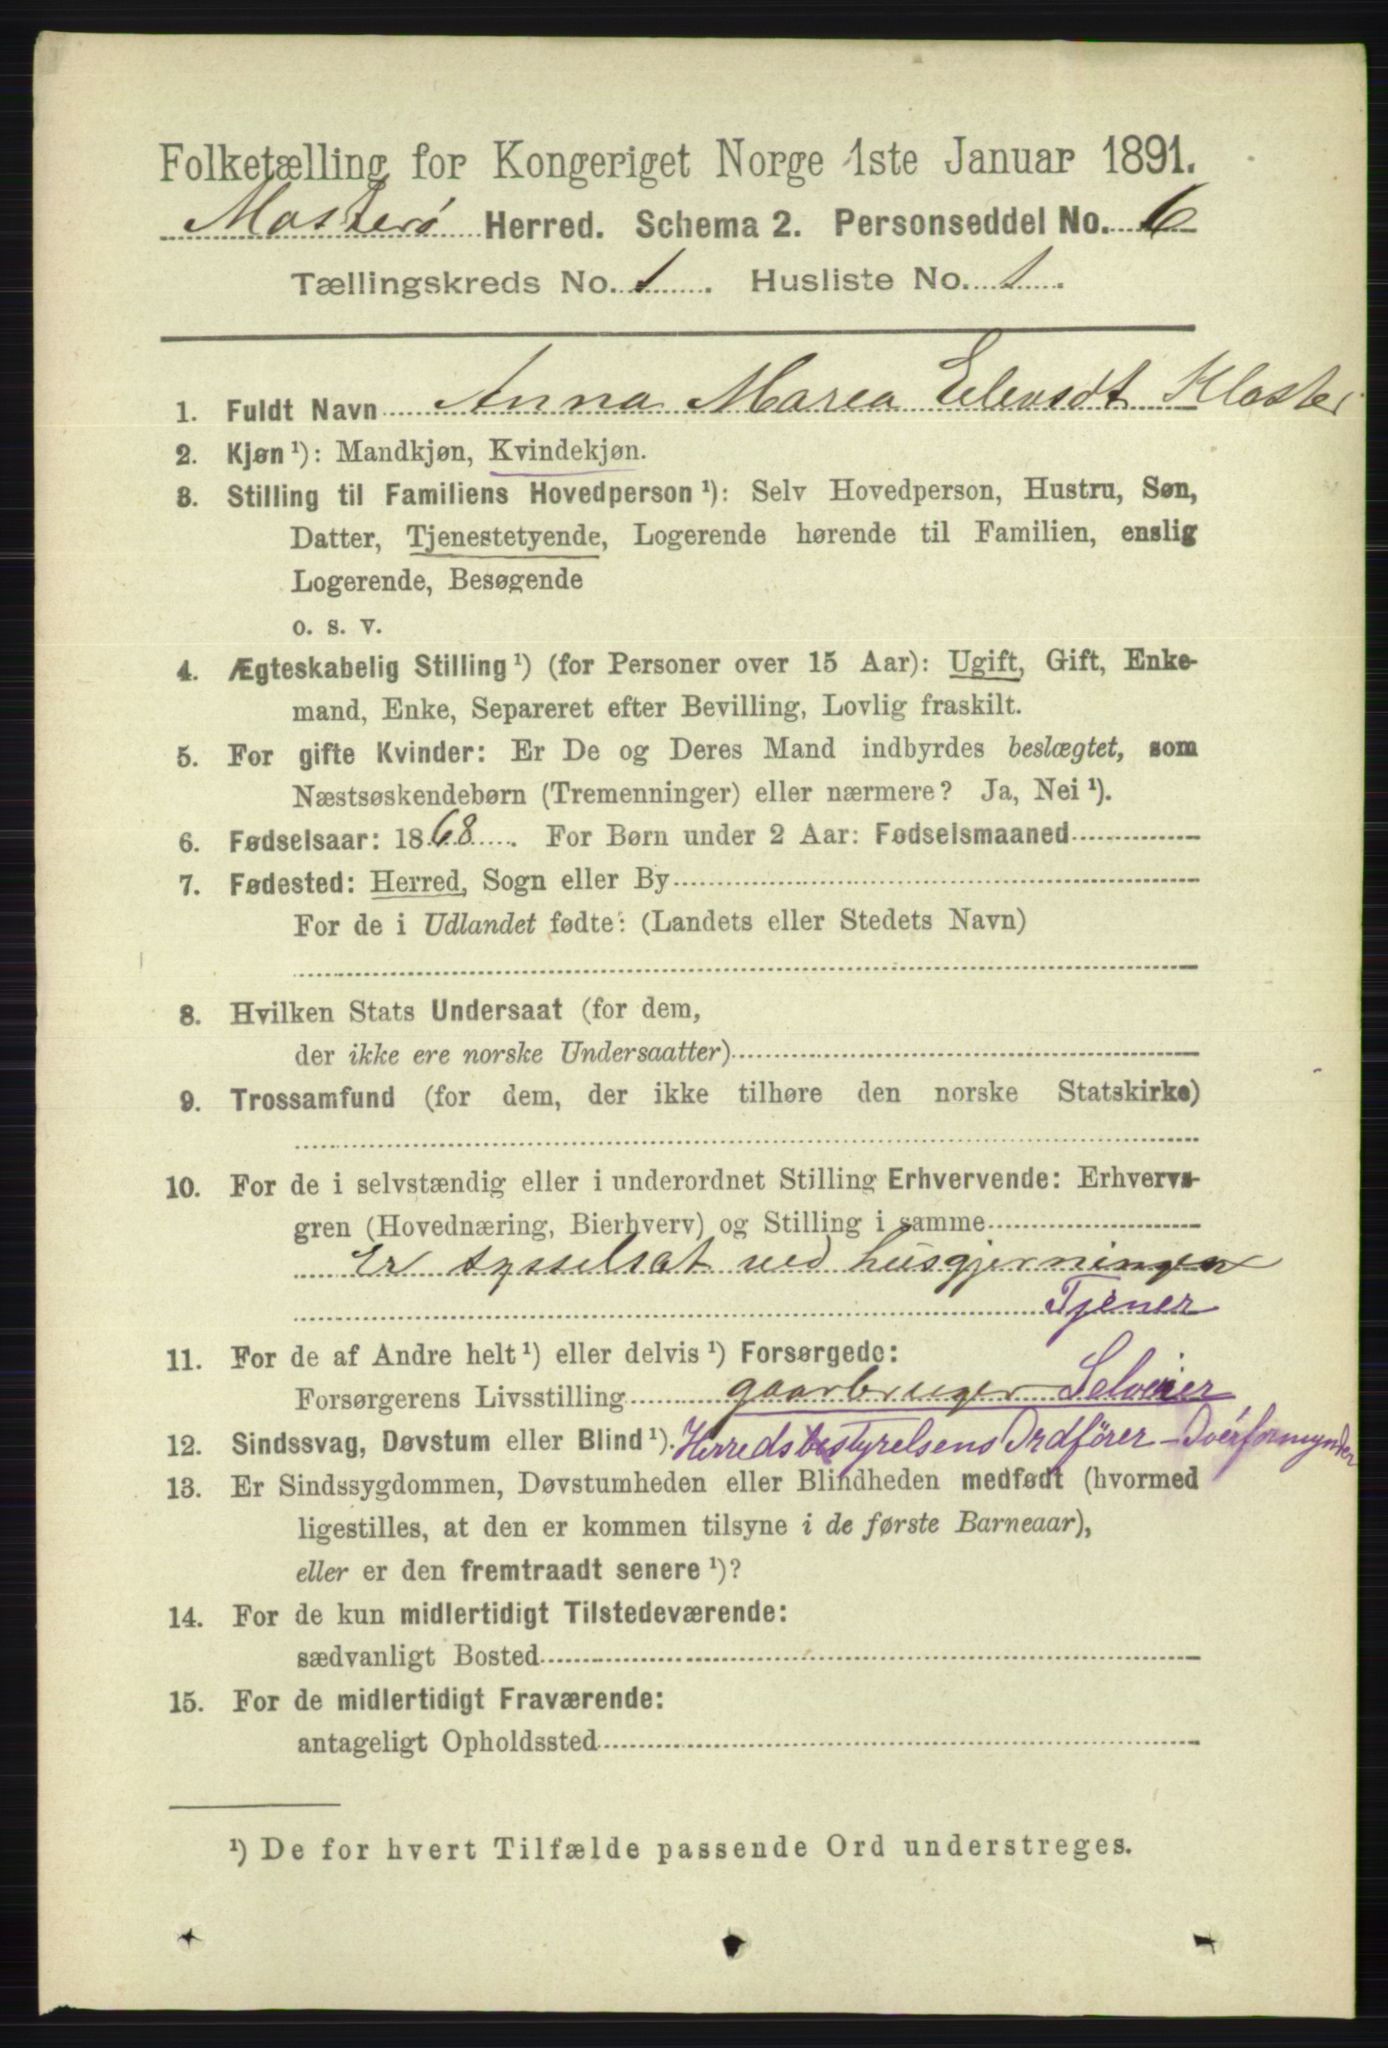 Folketælling for Kongeriget Norge 1ste Januar 1891.
Mosterø Herred. Schema 2. Personseddel No. 6
Tællingskreds No. 1. Husliste No. 1.
1. Fuldt Navn Anna Marea Eilevsdt Kloster
2. Kjøn ¹): Mandkjøn, Kvindekjøn.
3. Stilling til Familiens Hovedperson ¹): Selv Hovedperson, Hustru, Søn,
Datter, Tjenestetyende, Logerende hørende til Familien, enslig
Logerende, Besøgende
o. s. v.
4. Ægteskabelig Stilling ¹) (for Personer over 15 Aar): Ugift, Gift, Enke-
mand, Enke, Separeret efter Bevilling, Lovlig fraskilt.
5. For gifte Kvinder: Er De og Deres Mand indbyrdes beslægtet, som
Næstsøskendebørn (Tremenninger) eller nærmere? Ja, Nei ¹).
6. Fødselsaar: 1868. For Børn under 2 Aar: Fødselsmaaned
7. Fødested: Herred, Sogn eller By
For de i Udlandet fødte: (Landets eller Stedets Navn)
8. Hvilken Stats Undersaat (for dem,
der ikke ere norske Undersaatter)
9. Trossamfund (for dem, der ikke tilhøre den norske Statskirke)
10. For de i selvstændig eller i underordnet Stilling Erhvervende: Erhvervs-
gren (Hovednæring, Bierhverv) og Stilling i samme
Er sysselsat ved husgjerningen
Tjener
11. For de af Andre helt ¹) eller delvis ¹) Forsørgede:
Forsørgerens Livsstilling gaarbruger Selveier
12. Sindssvag, Døvstum eller Blind ¹). Herredsbestyrelsens Ordfører - Overformynder
13. Er Sindssygdommen, Døvstumheden eller Blindheden medfødt (hvormed
ligestilles, at den er kommen tilsyne i de første Barneaar),
eller er den fremtraadt senere ¹)?
14. For de kun midlertidigt Tilstedeværende:
sædvanligt Bosted
15. For de midlertidigt Fraværende:
antageligt Opholdssted
¹) De for hvert Tilfælde passende Ord understreges.